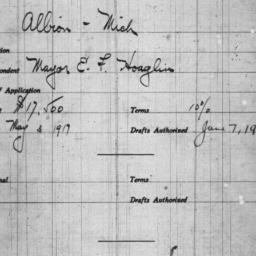 Albion - Mich
Mayor E. F. Hoaglin
Application
$17,500 Terms 10%
May 2 1917 Drafts Authorized June 7, 19
Terms
Drafts Authorized